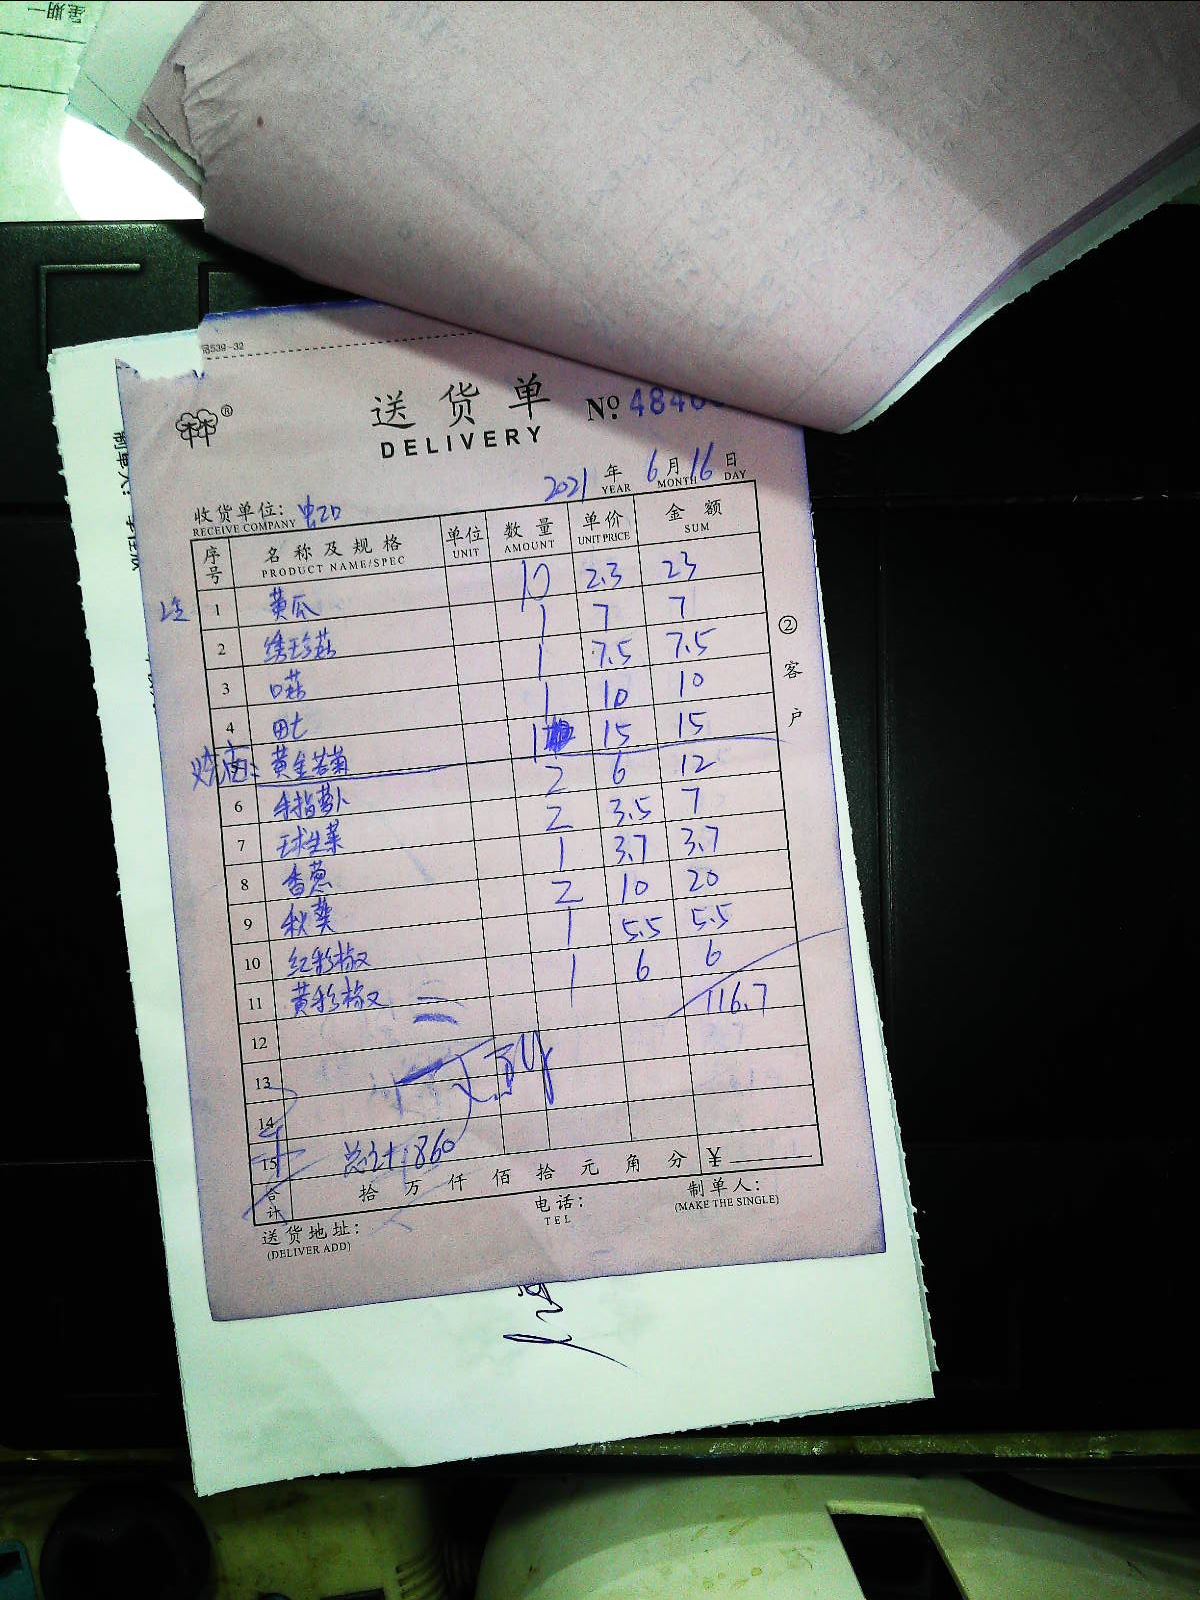 星期一
8539-32
送货单
DELIVERY
No. 4840
2021 年 6 月 16 日
YEAR MONTH DAY
收货单位:
RECEIVE COMPANY
序号 名称及规格 单位 数量 单价 金额
PRODUCT NAME/SPEC UNIT AMOUNT UNIT PRICE SUM
1 黄瓜 10 2.3 23
2 绣珍菇 1 7 7
3 口菇 1 7.5 7.5
4 田七 1 10 10
烧卤: 黄金苦菊 1 15 15
6 手指萝卜 2 6 12
7 球生菜 2 3.5 7
8 香葱 1 3.7 3.7
9 秋葵 2 10 20
10 红彩椒 1 5.5 5.5
11 黄彩椒 1 6 6
12 116.7
13
14
15 总计: 860
合计 拾 万 仟 佰 拾 元 角 分 ¥
送货地址: 电话: 制单人:
(DELIVER ADD) TEL (MAKE THE SINGLE)
② 客户